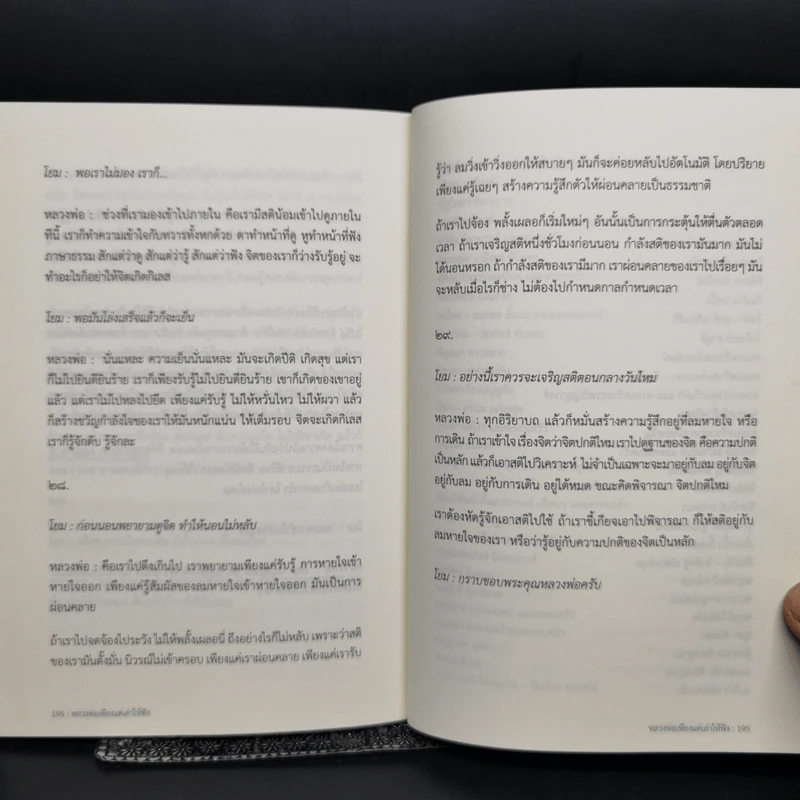 โยม : พอเราไม่มอง เราก็...
หลวงพ่อ : ช่วงที่เรามองเข้าไปภายใน คือเรามีสติน้อมเข้าไปดูภายใน
ทีนี้ เราก็ทำความเข้าใจกับทวารทั้งหกด้วย ตาทำหน้าที่ดู หูทำหน้าที่ฟัง
ภาษาธรรม สักแต่ว่าดู สักแต่ว่ารู้ สักแต่ว่าฟัง จิตของเราก็ว่างรับรู้อยู่ จะ
ทำอะไรก็อย่าให้จิตเกิดกิเลส
โยม : พอมันโล่งเสร็จแล้วก็จะเย็น
หลวงพ่อ : นั่นแหละ ความเย็นนั่นแหละ มันจะเกิดปีติ เกิดสุข แต่เรา
ก็ไม่ไปยินดียินร้าย เราก็เพียงรับรู้ไม่ไปยินดียินร้าย เขาก็เกิดของเขาอยู่
แล้ว แต่เราไม่ไปหลงไปยึด เพียงแค่รับรู้ ไม่ให้หวั่นไหว ไม่ให้ผวา แล้ว
ก็สร้างขวัญกำลังใจของเราให้มันหนักแน่น ให้เต็มรอบ จิตจะเกิดกิเลส
เราก็รู้จักดับ รู้จักละ
๒๘.
โยม : ก่อนนอนพยายามดูจิต ทำให้นอนไม่หลับ
หลวงพ่อ : คือเราไปดึงเกินไป เราพยายามเพียงแค่รับรู้ การหายใจเข้า
หายใจออก เพียงแค่รู้สัมผัสของลมหายใจเข้าหายใจออก มันเป็นการ
ผ่อนคลาย
ถ้าเราไปจดจ้องไประวัง ไม่ให้พลั้งเผลอนี่ ถึงอย่างไรก็ไม่หลับ เพราะว่าสติ
ของเรามันตั้งมั่น นิวรณ์ไม่เข้าครอบ เพียงแค่เราผ่อนคลาย เพียงแค่เรารับ
194 : หลวงพ่อเพียงแค่เล่าให้ฟัง
รู้ว่า ลมวิ่งเข้าวิ่งออกให้สบายๆ มันก็จะค่อยหลับไปอัตโนมัติ โดยปริยาย
เพียงแค่รู้เฉยๆ สร้างความรู้สึกตัวให้ผ่อนคลายเป็นธรรมชาติ
ถ้าเราไปจ้อง พลั้งเผลอก็เริ่มใหม่ๆ อันนั้นเป็นการกระตุ้นให้ตื่นตัวตลอด
เวลา ถ้าเราเจริญสติหนึ่งชั่วโมงก่อนนอน กำลังสติของเรามันมาก มันไม่
ได้นอนหรอก ถ้ากำลังสติของเรามีมาก เราผ่อนคลายของเราไปเรื่อยๆ มัน
จะหลับเมื่อไรก็ช่าง ไม่ต้องไปกำหนดกาลกำหนดเวลา
๒๙.
โยม : อย่างนี้เราควรจะเจริญสติตอนกลางวันไหม
หลวงพ่อ : ทุกอิริยาบถ แล้วก็หมั่นสร้างความรู้สึกอยู่ที่ลมหายใจ หรือ
การเดิน ถ้าเราเข้าใจ เรื่องจิตว่าจิตปกติไหม เราไปดูฐานของจิต คือความปกติ
เป็นหลัก แล้วก็เอาสติไปวิเคราะห์ ไม่จำเป็นเฉพาะจะมาอยู่กับลม อยู่กับจิต
อยู่กับลม อยู่กับการเดิน อยู่ได้หมด ขณะคิดพิจารณา จิตปกติไหม
เราต้องหัดรู้จักเอาสติไปใช้ ถ้าเราขี้เกียจเอาไปพิจารณา ก็ให้สติอยู่กับ
ลมหายใจของเรา หรือว่ารู้อยู่กับความปกติของจิตเป็นหลัก
โยม : กราบขอบพระคุณหลวงพ่อครับ
หลวงพ่อเพียงแค่เล่าให้ฟัง : 195